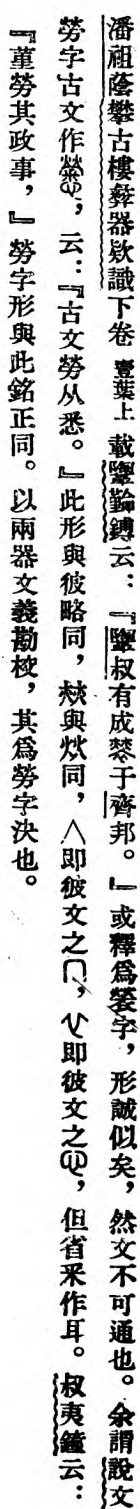 潘祖蔭攀古樓彝器欵識下卷壹葉上載𦅫鎛云：『叔有成褮于齊邦。』或釋爲褮字，形誠似矣，然文不可通也。余謂說文
勞字古文作，云：『古文勞从悉。』此形與彼略同，炏與炏同，八卽彼文之冖，父卽彼文之，但省釆作耳。叔夷鐘云：
『堇勞其政事，』勞字形與此銘正同。以兩器文義勘校，其爲勞字決也。